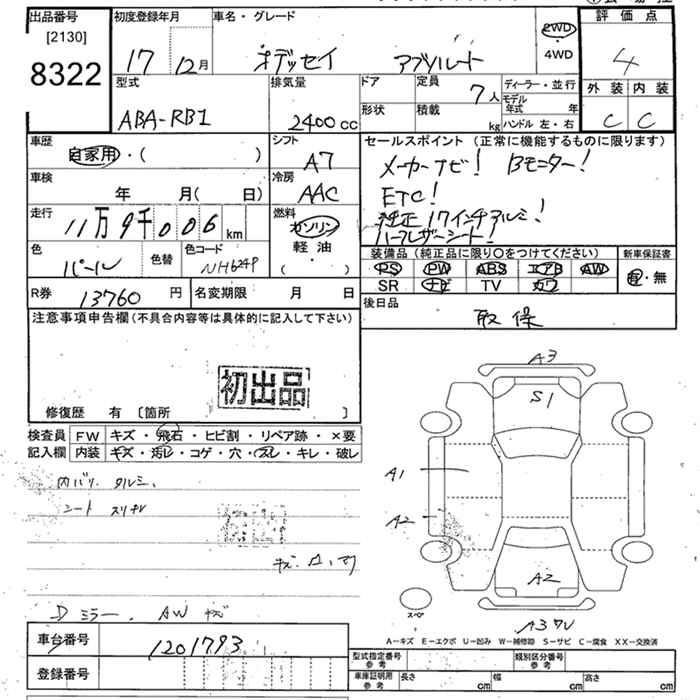 出品番号
[2130]
8322
初度登録年月
17 12月
車名・グレード
オデッセイ アブソルート
2WD
・
4WD
評価点
4
外装 内装
C C
型式
ABA-RB1
排気量
2400cc
ドア
形状
定員
7人
積載
kg
ディーラー・並行
モデル年式 年
ハンドル 左・右
車歴
自家用・( )
シフト
A7
車検
年 月( 日)
冷房
AAC
走行
11万9千006km
燃料
ガソリン
軽油
( ・ )
色
パール
色替
色コード
NH624P
セールスポイント(正常に機能するものに限ります)
メーカーナビ! Bモニター!
ETC!
純正17インチアルミ!
ハーフレザーシート
装備品(純正品に限り○をつけてください)
PS PW ABS エアB AW
SR ナビ TV カワ
新車保証書
有・無
R券
13760円
名変期限 月 日
後日品
取保
注意事項申告欄(不具合内容等は具体的に記入して下さい)
初出品
修復歴 有 〔箇所 〕
検査員
記入欄
FW キズ・飛石・ヒビ割・リペア跡・×要
内装 キズ・汚レ・コゲ・穴・スレ・キレ・破レ
内バリ タルミ、
シート スリキレ
Dミラー、AWキズ
A3
S1
A1
A2
A2
スペア
A3
A-キズ E-エクボ U-凹み W-補修跡 S-サビ C-腐食 XX-交換済
車台番号
1201793
登録番号
型式指定番号
参考
類別区分番号
参考
車庫証明用
参考
長さ cm 幅 cm 高さ cm